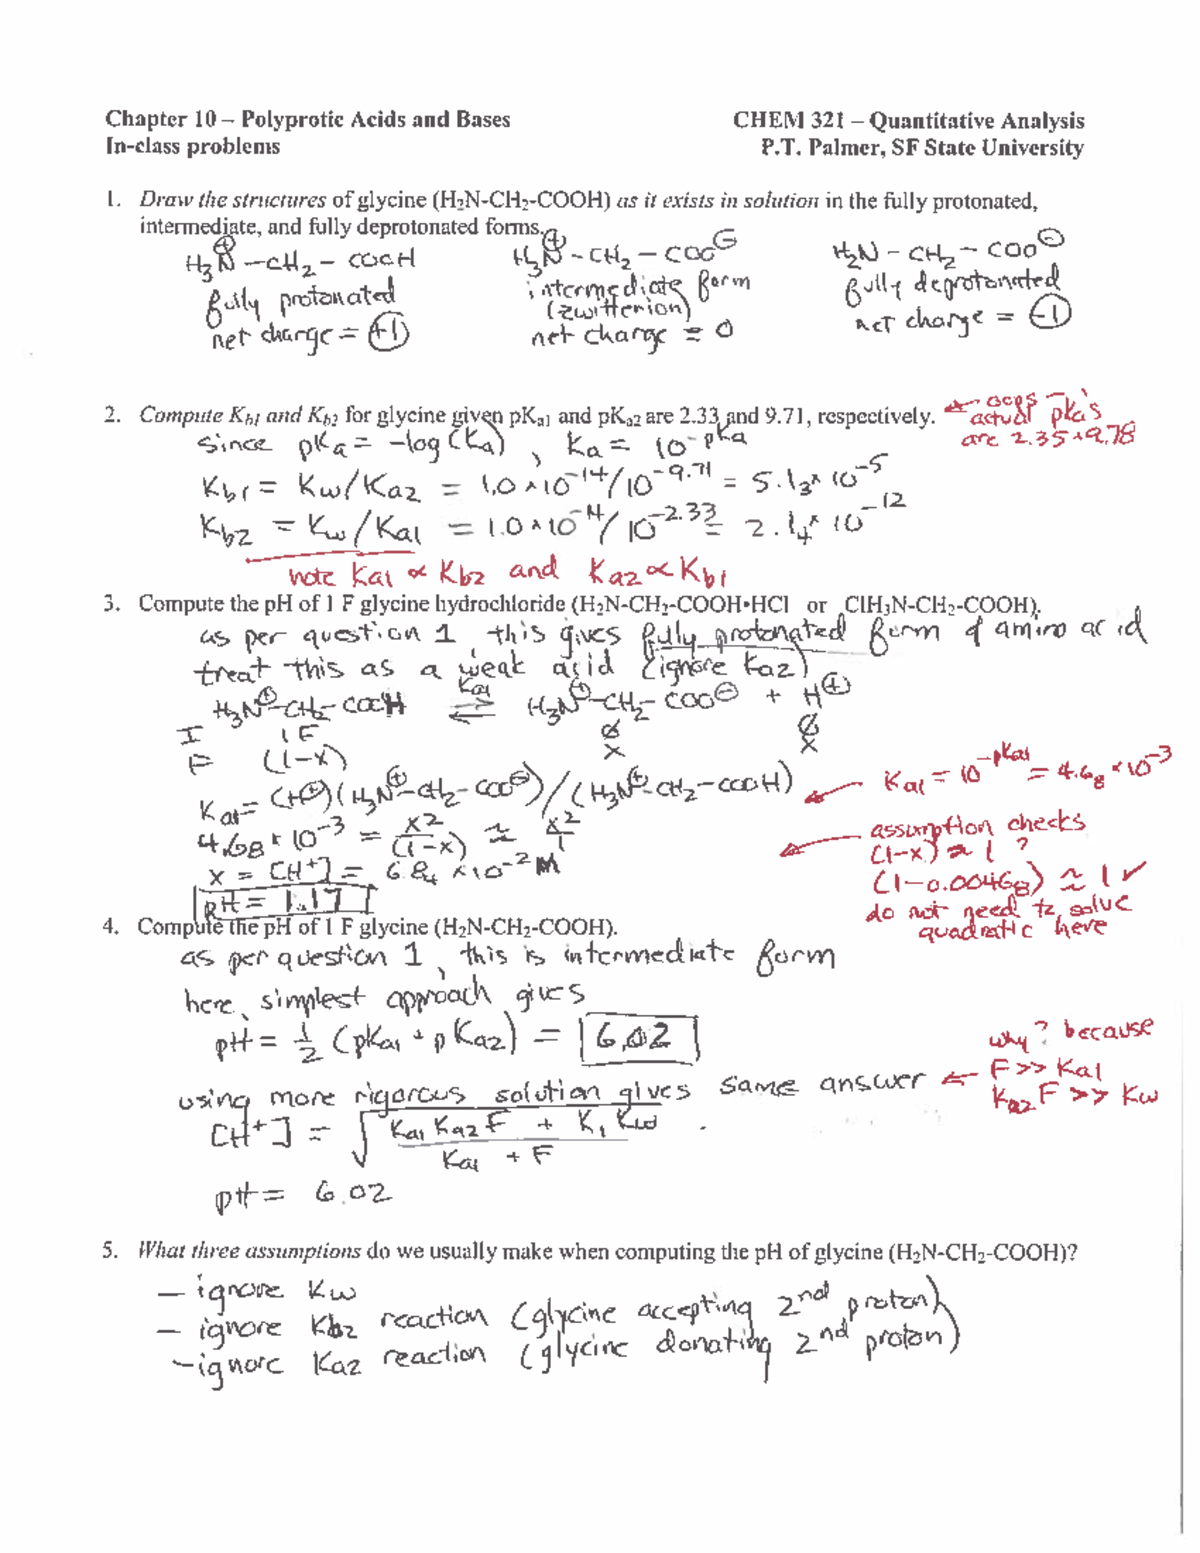 Chapter 10 – Polyprotic Acids and Bases
In-class problems
CHEM 321 – Quantitative Analysis
P.T. Palmer, SF State University
1. Draw the structures of glycine (H₂N-CH₂-COOH) as it exists in solution in the fully protonated,
intermediate, and fully deprotonated forms.
H₃N⊕ – CH₂ – COOH
fully protonated
net charge = +1
H₃N⊕ – CH₂ – COO⊖
intermediate form
(zwitterion)
net charge = 0
H₂N – CH₂ – COO⊖
fully deprotonated
net charge = -1
2. Compute Kb1 and Kb2 for glycine given pKa1 and pKa2 are 2.33 and 9.71, respectively.
← oops –
actual pKa's
are 2.35 + 9.78
since pKa = -log(Ka), Ka = 10^-pKa
Kb1 = Kw/Ka2 = 1.0 × 10^-14/10^-9.71 = 5.1₃ × 10^-5
Kb2 = Kw/Ka1 = 1.0 × 10^-14/10^-2.33 = 2.1₄ × 10^-12
note Ka1 ∝ Kb2 and Ka2 ∝ Kb1
3. Compute the pH of 1 F glycine hydrochloride (H₂N-CH₂-COOH•HCl or ClH₃N-CH₂-COOH).
as per question 1, this gives fully protonated form of amino acid
treat this as a weak acid (ignore Ka2)
H₃N⊕-CH₂-COOH ⇌ Ka1 H₃N⊕-CH₂-COO⊖ + H⊕
I 1F Ø Ø
F (1-x) x x
Ka1 = (H⊕)(H₃N⊕-CH₂-COO⊖)/(H₃N⊕-CH₂-COOH)
← Ka1 = 10^-pKa1 = 4.6₈ × 10^-3
4.68 × 10^-3 = x²/(1-x) ≈ x²/1
x = [H⁺] = 6.8₄ × 10^-2 M
pH = 1.17
← assumption checks
(1-x) ≈ 1 ?
(1-0.00468) ≈ 1 ✓
do not need to solve
quadratic here
4. Compute the pH of 1 F glycine (H₂N-CH₂-COOH).
as per question 1, this is intermediate form
here, simplest approach gives
pH = ½ (pKa1 + pKa2) = 6.02
using more rigorous solution gives same answer
← why? because
F >> Ka1
Ka2 F >> Kw
[H⁺] = √(Ka1 Ka2 F + K₁ Kw / Ka1 + F)
pH = 6.02
5. What three assumptions do we usually make when computing the pH of glycine (H₂N-CH₂-COOH)?
– ignore Kw
– ignore Kb2 reaction (glycine accepting 2nd proton)
– ignore Ka2 reaction (glycine donating 2nd proton)